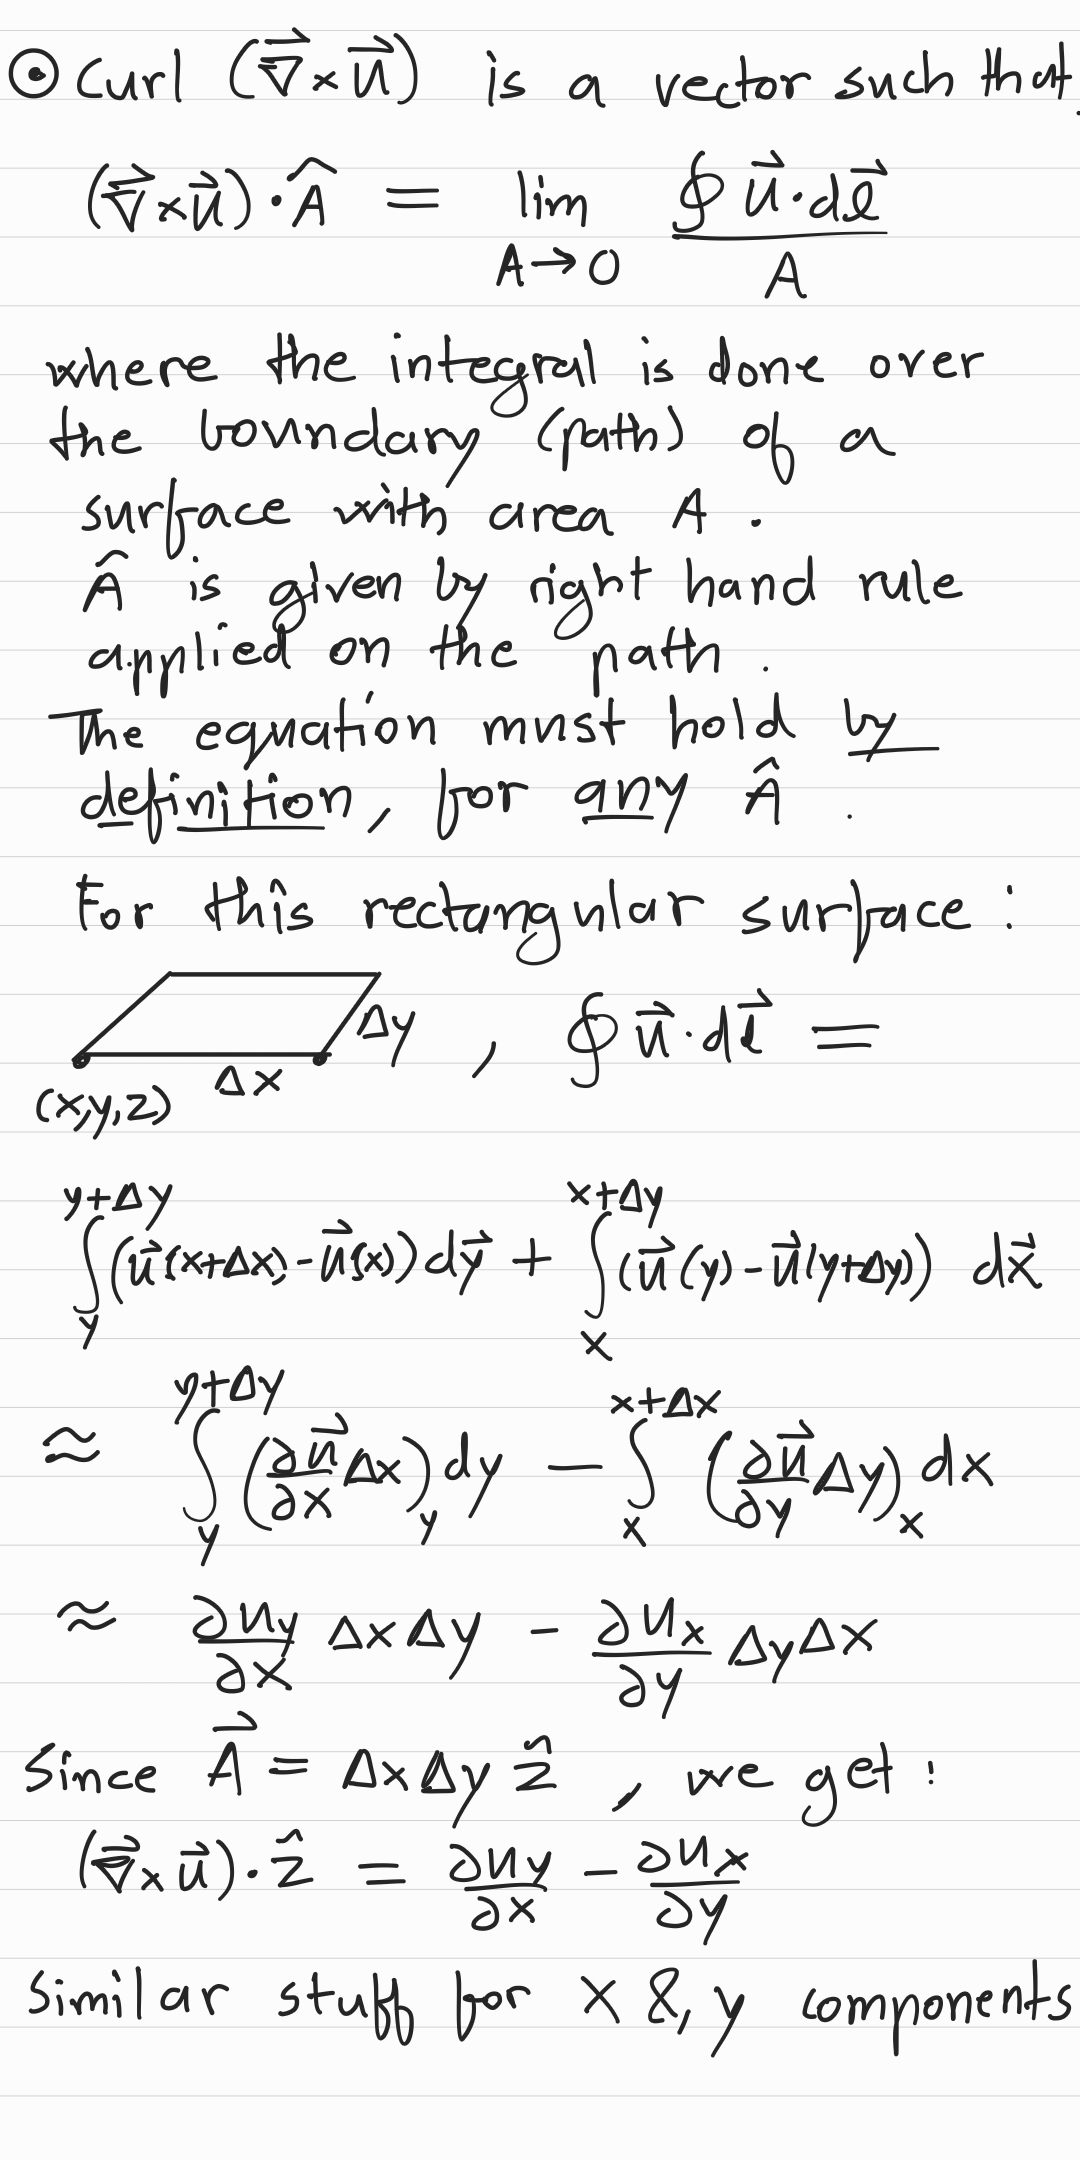 ⊙ Curl (∇⃗×u⃗) is a vector such that,
(∇⃗×u⃗)·Â = lim A→0 ∮ u⃗·dl⃗ / A
where the integral is done over
the boundary (path) of a
surface with area A.
Â is given by right hand rule
applied on the path.
The equation must hold by
definition, for any Â.
For this rectangular surface:
Δy , ∮ u⃗·dl⃗ =
(x,y,z) Δx
∫_y^{y+Δy} (u⃗(x+Δx) - u⃗(x)) dy⃗ + ∫_x^{x+Δy} (u⃗(y) - u⃗(y+Δy)) dx⃗
≈ ∫_y^{y+Δy} (∂u⃗/∂x Δx)_y dy - ∫_x^{x+Δx} (∂u⃗/∂y Δy)_x dx
≈ ∂u_y/∂x ΔxΔy - ∂u_x/∂y ΔyΔx
Since A⃗ = ΔxΔy ẑ , we get:
(∇⃗×u⃗)·ẑ = ∂u_y/∂x - ∂u_x/∂y
Similar stuff for x & y components